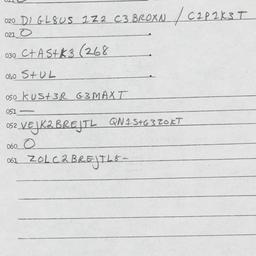 020 D1 GL8US 1Z2 C3BROXN / C2P1K3T
021 O
030 C+AS+K3 (268
040 S+UL
050 KUS+3R G3MAXT
051 —
052 VEJK2BREJTL QN1S+G3ZOKT
060 O
061 ZOLC2BREJTL8-